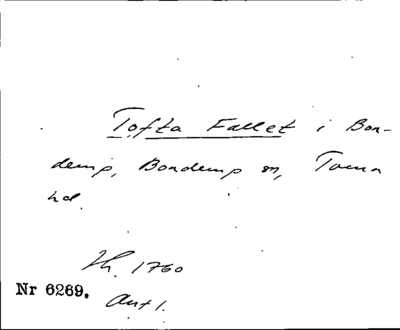 Tofta Fallet i Bon-
demp, Bondemp sn, Touna
hd.
Th. 1760
Nr 6269. Ant 1.